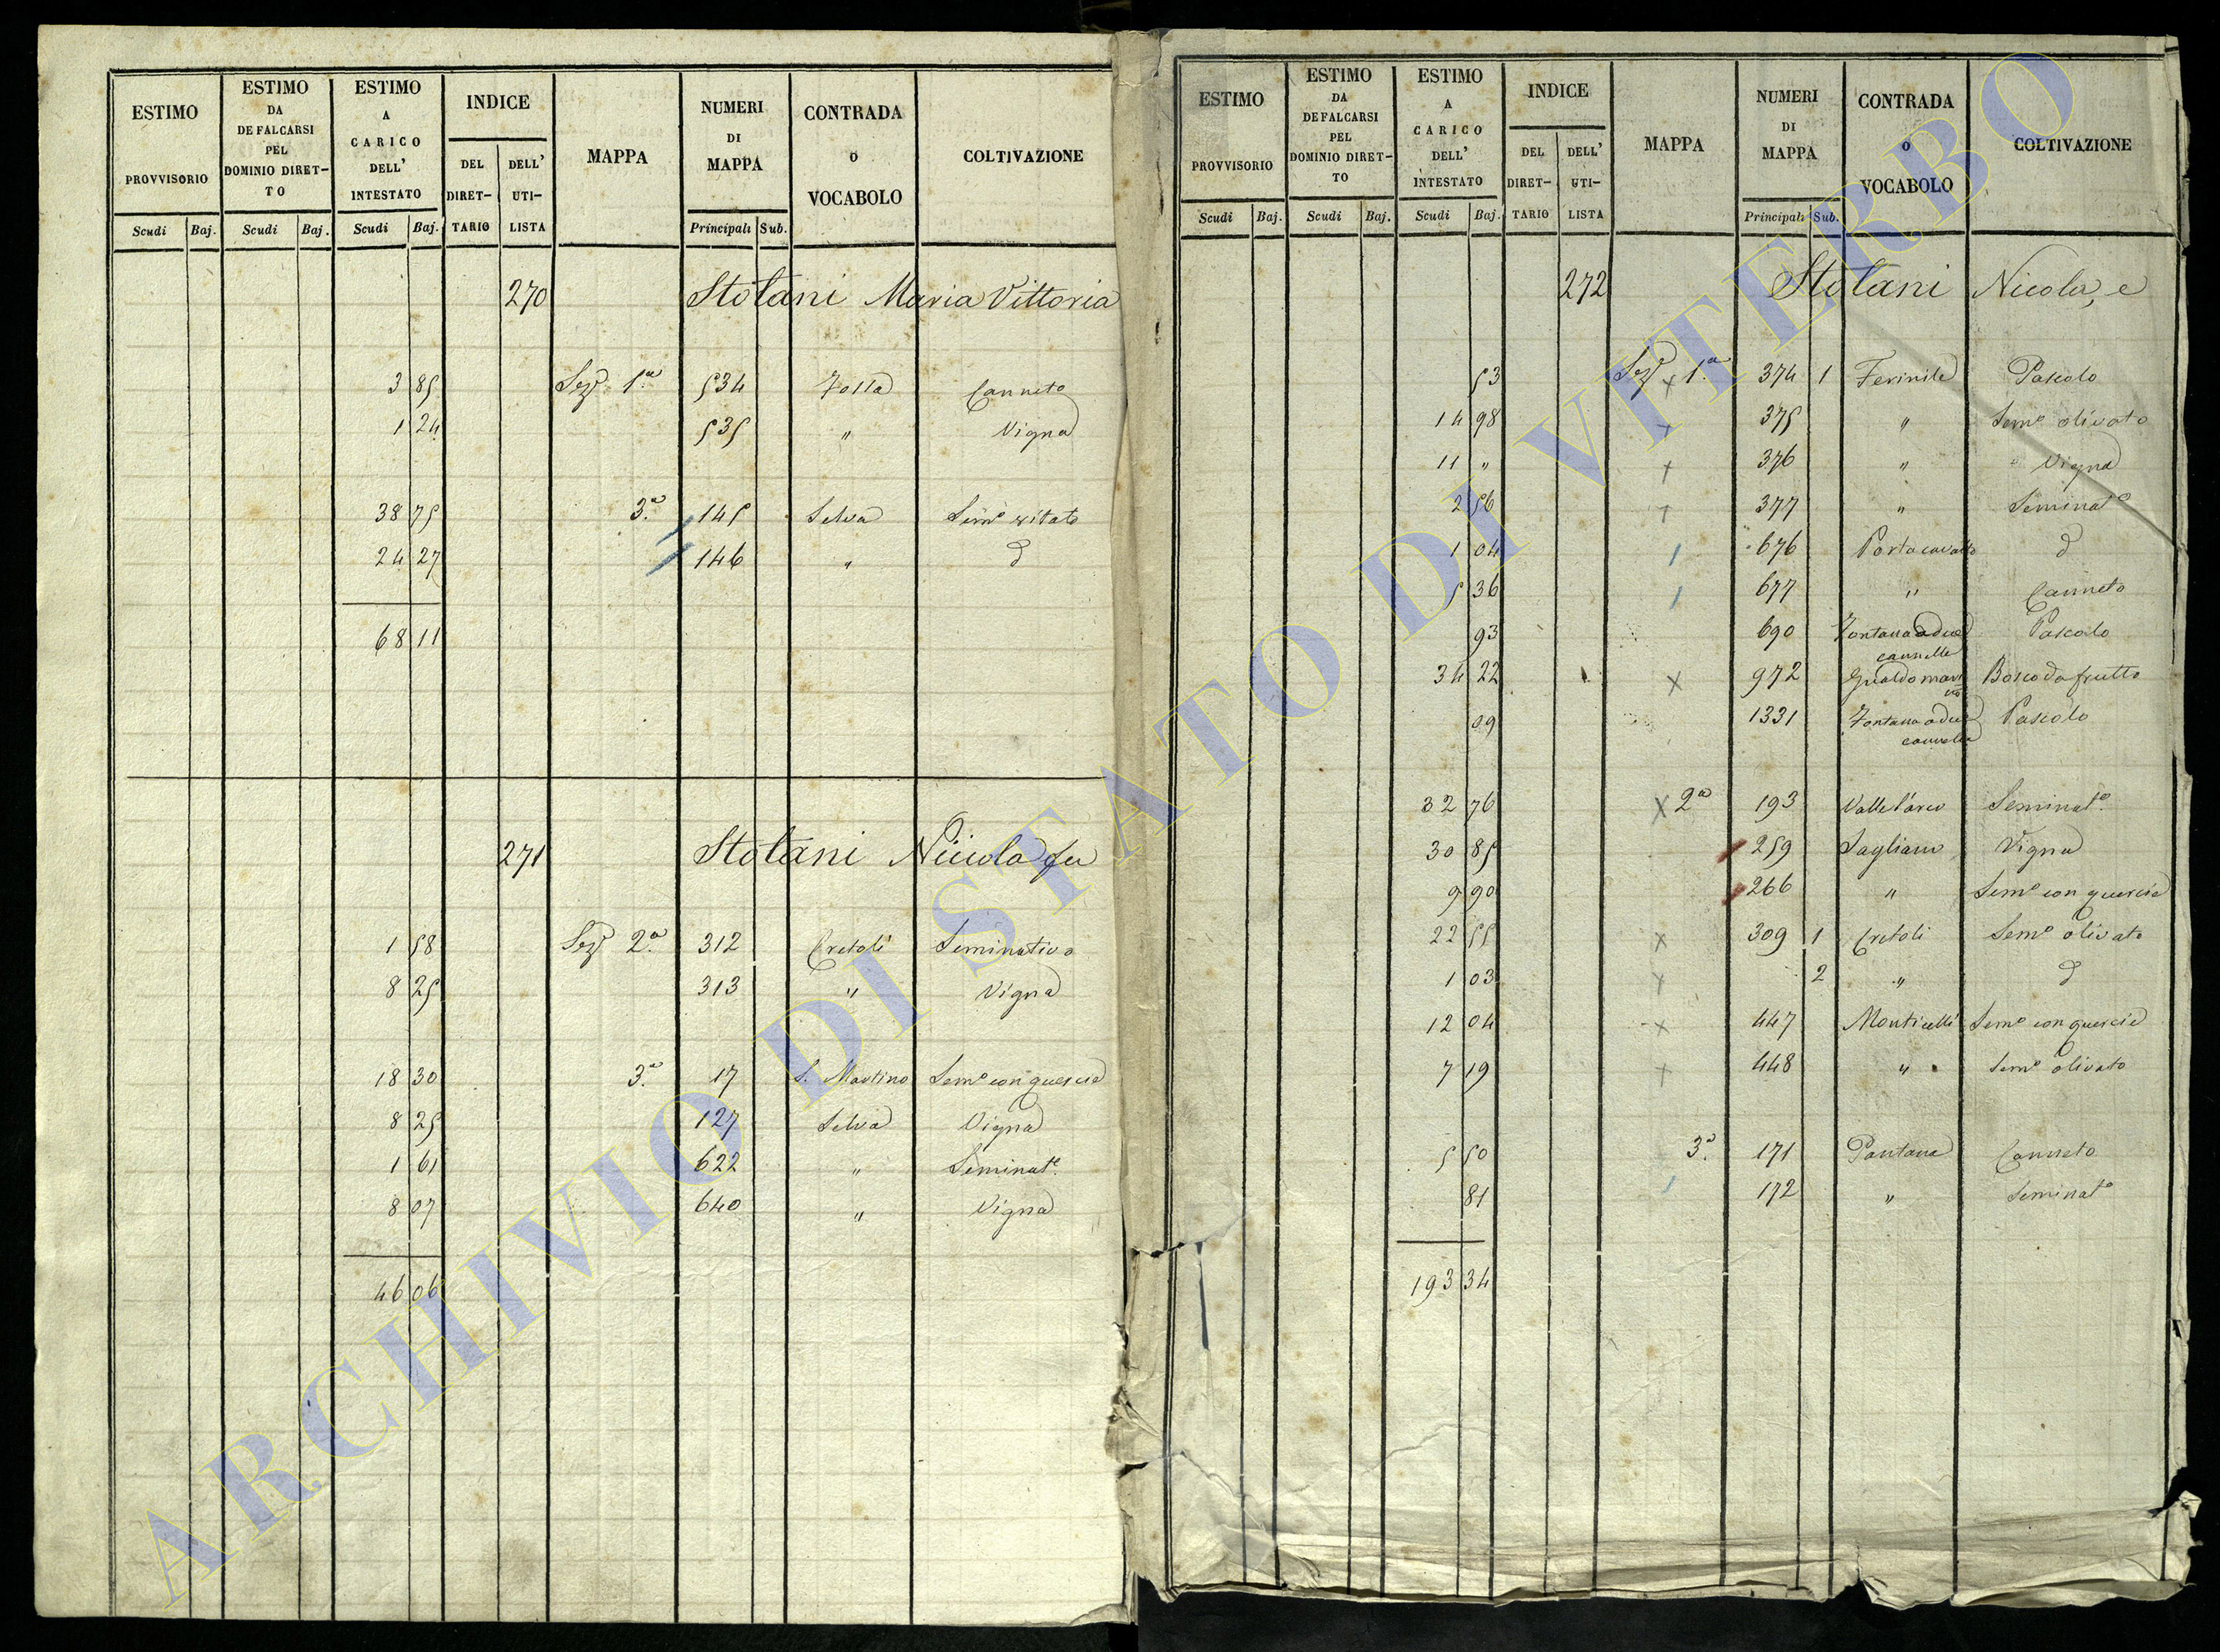 ESTIMO PROVVISORIO | ESTIMO DA DEFALCARSI PEL DOMINIO DIRET-TO | ESTIMO A CARICO DELL' INTESTATO | INDICE | MAPPA | NUMERI DI MAPPA | CONTRADA O VOCABOLO | COLTIVAZIONE
DEL DIRET-TARIO | DELL' UTI-LISTA
Scudi | Baj. | Scudi | Baj. | Scudi | Baj. | Principali | Sub.
270 Stolani Maria Vittoria
3 85 Sez.e 1.a 534 Canneto
1 24 535 " Vigna
38 75 3.a 145 Selva Sem.o vitato
24 27 146 " d
68 11
271 Stolani Niccola fu
1 58 Sez.e 2.a 312 Cretoli Seminativo
8 25 313 " Vigna
18 30 3.a 17 S. Martino Sem.o con quercie
8 25 127 Selva Vigna
1 61 622 " Seminat.o
8 07 640 " Vigna
46 06
ESTIMO PROVVISORIO | ESTIMO DA DEFALCARSI PEL DOMINIO DIRET-TO | ESTIMO A CARICO DELL' INTESTATO | INDICE | MAPPA | NUMERI DI MAPPA | CONTRADA O VOCABOLO | COLTIVAZIONE
DEL DIRET-TARIO | DELL' UTI-LISTA
Scudi | Baj. | Scudi | Baj. | Scudi | Baj. | Principali | Sub.
272 Stolani Nicola, e
53 Sez.e 1.a 374 1 Ferinile Pascolo
14 98 375 " Sem.o olivato
11 " 376 " Vigna
2 56 377 " Seminat.o
1 04 676 Portacavallo d
5 36 677 " Canneto
93 690 Fontana a due cannelle Pascolo
34 22 972 Bosco da frutto
09 1331 Fontana a due cannelle Pascolo
32 76 2a 193 Valle l'arco Seminat.o
30 85 259 Sagliano Vigna
9 90 266 " Sem.o con quercie
22 55 309 1 Cretoli Sem.o olivato
1 03 2 " d
12 04 447 Monticelli Sem.o con quercie
7 19 448 " Sem.o olivato
5 50 3.a 171 Pantane Canneto
81 172 " Seminat.o
193 34
ARCHIVIO DI STATO DI VITERBO